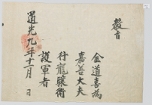 敎旨
金道喜爲
嘉善大夫
行龍驤衛
護軍者
道光九年十二月 日